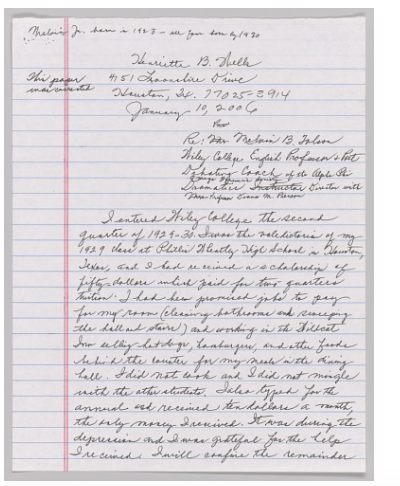 Melvin Jr. born in 1923 – all four born by 1930
Henrietta B. Wells
This paper
was corrected
4151 Drive
Houston, Tx. 77025-3914
January 10, 2006
Re: Melvin B. Tolson
Wiley College English Professor & Poet
Debating Coach of the Alpha Phi
Dramatics Instructor Director with
I entered Wiley College the second
quarter of 1929-30. I was the valedictorian of my
1929 class at Phillis Wheatley High School in Houston,
Texas, and I had received a scholarship of
fifty dollars which paid for two quarters
tuition. I had been promised jobs to pay
for my room (cleaning bathrooms and sweeping
the hall and stairs) and working in the Wildcat
Inn selling hotdogs, hamburgers, and other foods
behind the counter for my meals in the dining
hall. I did not cook and I did not mingle
with the other students. I also typed for the
annual and received ten dollars a month,
the only money I received. It was during the
depression and I was grateful for the help
I received. I will confine the remainder